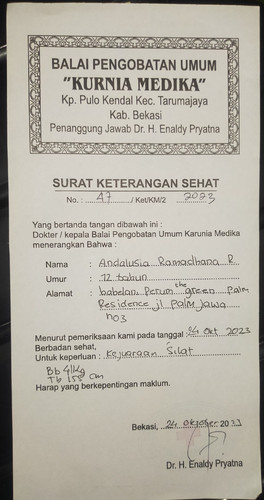 BALAI PENGOBATAN UMUM
"KURNIA MEDIKA"
Kp. Pulo Kendal Kec. Tarumajaya
Kab. Bekasi
Penanggung Jawab Dr. H. Enaldy Pryatna
SURAT KETERANGAN SEHAT
No. : 47 /Ket/KM/2 2023
Yang bertanda tangan dibawah ini :
Dokter / kepala Balai Pengobatan Umum Karunia Medika
menerangkan Bahwa :
Nama : Andalusia Ramadhana R
Umur : 12 tahun
Alamat : babelan Perum the green Palm
Residence jl Palm Jawa
no3
Menurut pemeriksaan kami pada tanggal 24 Okt 2023
Berbadan sehat,
Untuk keperluan : Kejuaraan Silat
Bb 41Kg
Tb 155 cm
Harap yang berkepentingan maklum.
Bekasi, 24 Oktober 2023
Dr. H. Enaldy Pryatna